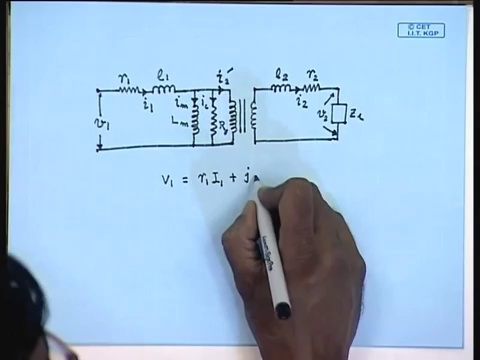 © CET
I.I.T. KGP
r₁ l₁ i₂′ l₂ r₂
i₁ iₘ i_c i₂
v₁ Lₘ v₂ Z_L
V₁ = r₁ I₁ + j